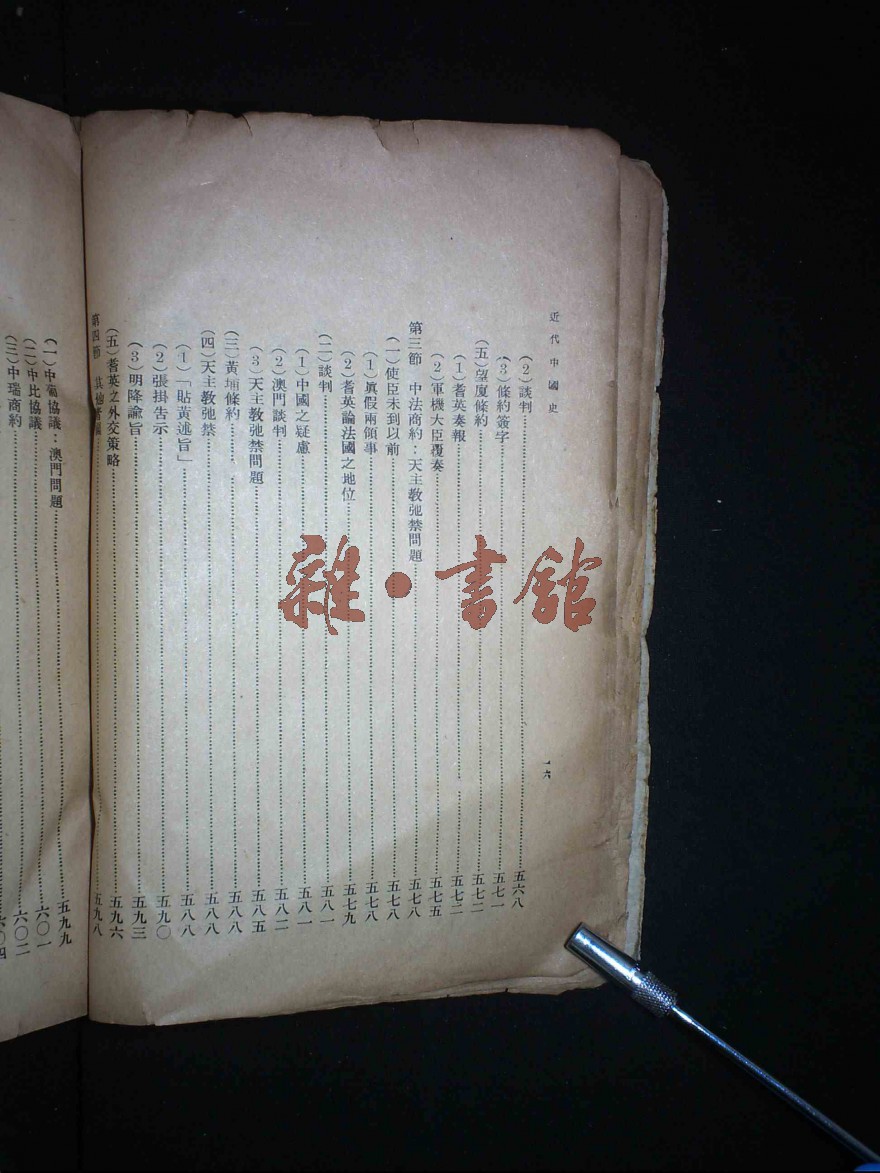 近代中國史
一六
(2)談判……五六八
(3)條約簽字……五七一
(五)望廈條約……五七二
(1)耆英奏報……五七二
(2)軍機大臣覆奏……五七五
第三節 中法商約：天主教弛禁問題……五七八
(一)使臣未到以前……五七八
(1)眞假兩領事……五七八
(2)耆英論法國之地位……五七九
(二)談判……五八一
(1)中國之疑慮……五八一
(2)澳門談判……五八二
(3)天主教弛禁問題……五八五
(三)黃埔條約……五八八
(四)天主教弛禁……五八八
(1)「貼黃述旨」……五八八
(2)張掛告示……五九〇
(3)明降諭旨……五九三
(五)耆英之外交策略……五九六
第四節 其他……五九八
(一)中葡協議：澳門問題……五九九
(二)中比協議……六〇一
(三)中瑞商約……六〇二
六〇四
雜·書館